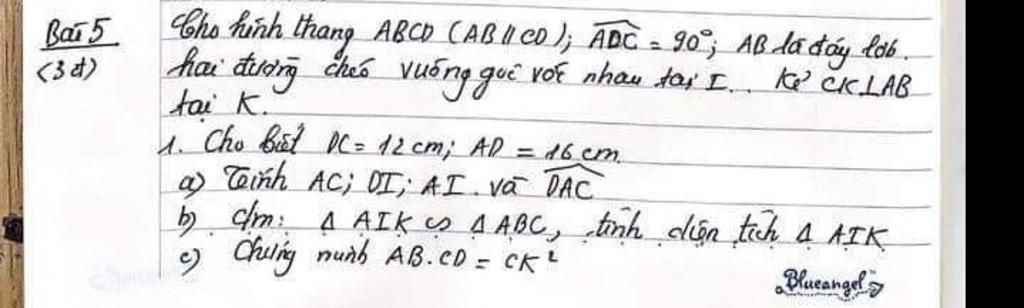 Bài 5 Cho hình thang ABCD (AB // CD); ADC = 90°; AB là đáy lớn.
(3đ) hai đường chéo vuông góc với nhau tại I. Kẻ CK⊥AB
tại K.
1. Cho biết DC = 12 cm; AD = 16 cm
a) Tính AC; DI; AI. và DAC
b) c/m: Δ AIK ∽ Δ ABC, tính diện tích Δ AIK
c) Chứng minh AB.CD = CK²
Blueangel